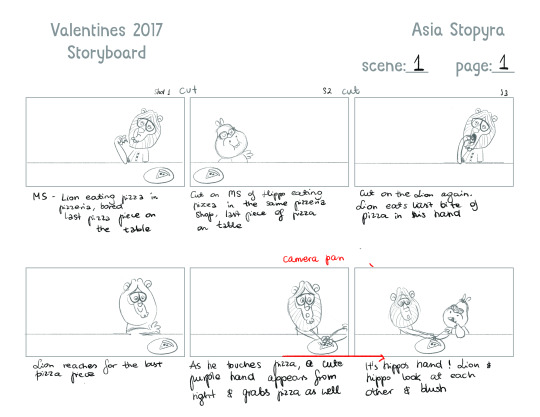 Valentines 2017
Storyboard
Asia Stopyra
scene: 1 page: 1
Shot 1 cut
S2 cut
S3
MS - Lion eating pizza in
pizzeria, bored
last pizza piece on
the table
Cut on MS of Hippo eating
pizza in the same pizzeria
shop, last piece of pizza
on table
Cut on the Lion again.
Lion eats last bite of
pizza in his hand
camera pan
Lion reaches for the last
pizza piece
As he touches pizza, a cute
purple hand appears from
right & grabs pizza as well
It's hippos hand! Lion &
hippo look at each
other & blush